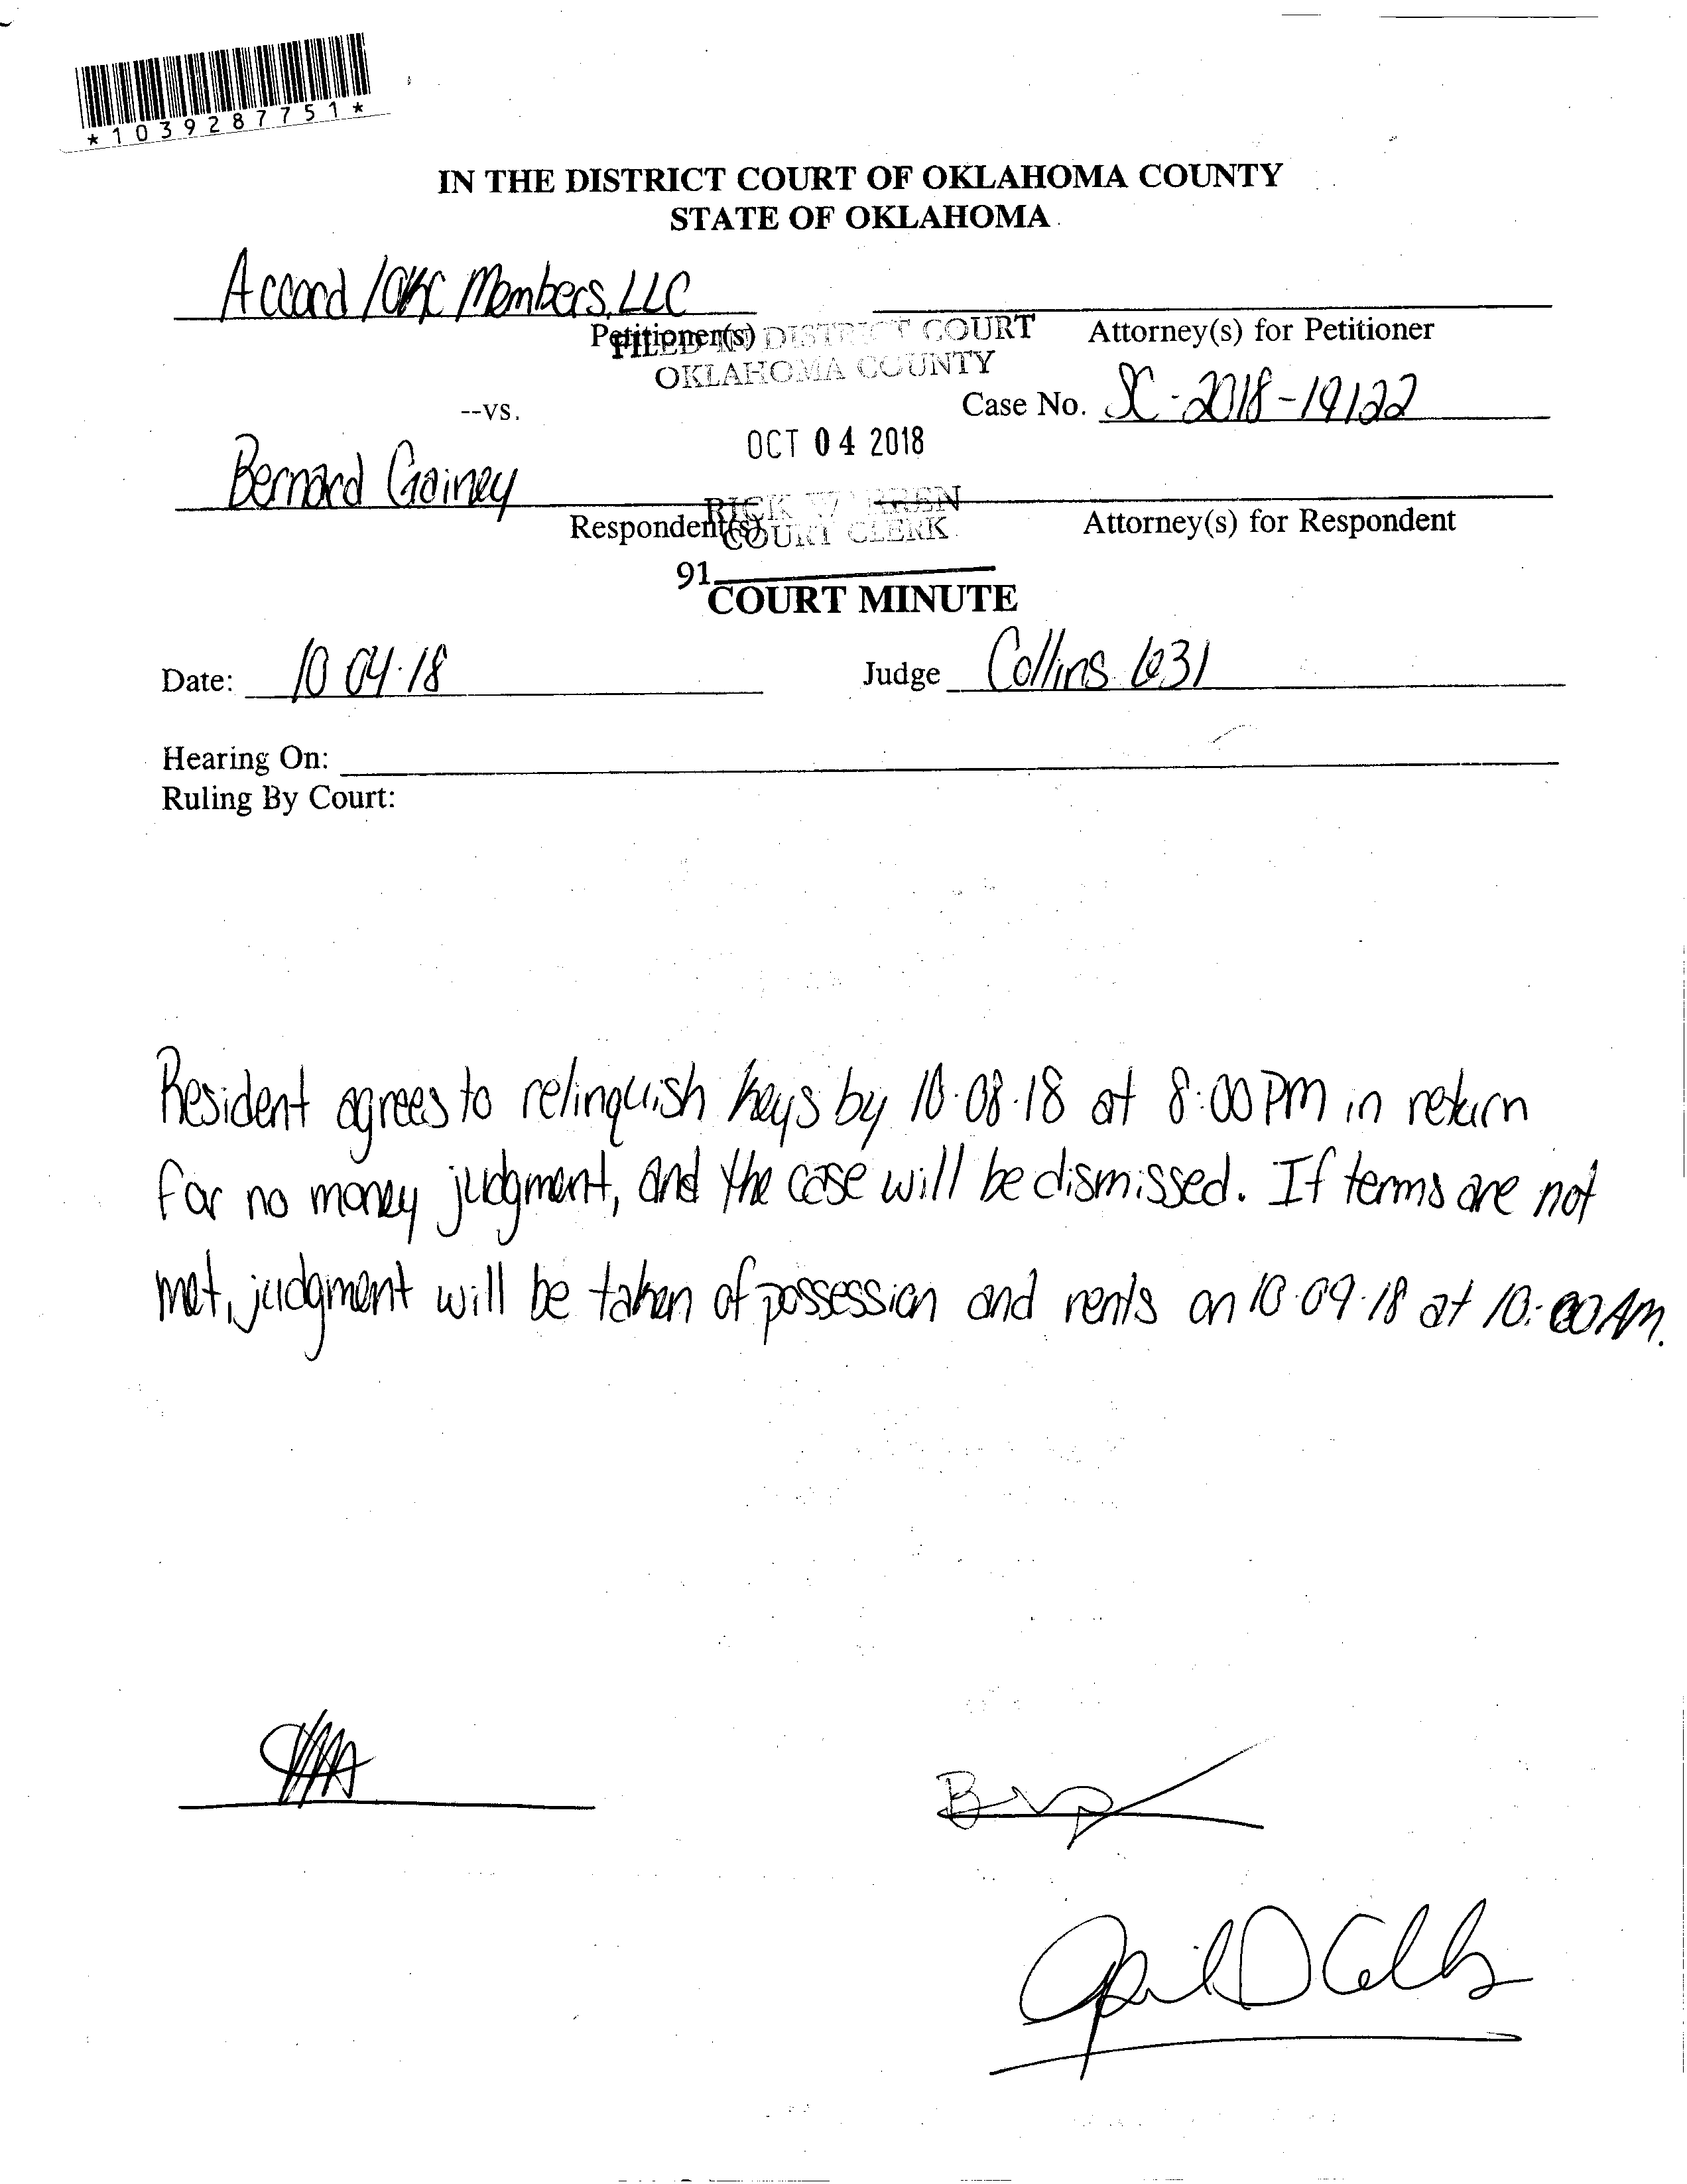 *1039287751*
IN THE DISTRICT COURT OF OKLAHOMA COUNTY
STATE OF OKLAHOMA
Accord / OKC Members, LLC
Petitioner(s)
Attorney(s) for Petitioner
FILED IN DISTRICT COURT
OKLAHOMA COUNTY
--vs.
Case No. SC-2018-19122
OCT 04 2018
Bernard Gainey
RICK WARREN
Respondent(s)
Attorney(s) for Respondent
COURT CLERK
91
COURT MINUTE
Date: 10 04·18
Judge Collins
Hearing On:
Ruling By Court:
Resident agrees to relinquish keys by 10·08·18 at 8:00 PM in return
for no money judgment, and the case will be dismissed. If terms are not
met, judgment will be taken of possession and rents on 10·09·18 at 10:00 AM.
April D Collins